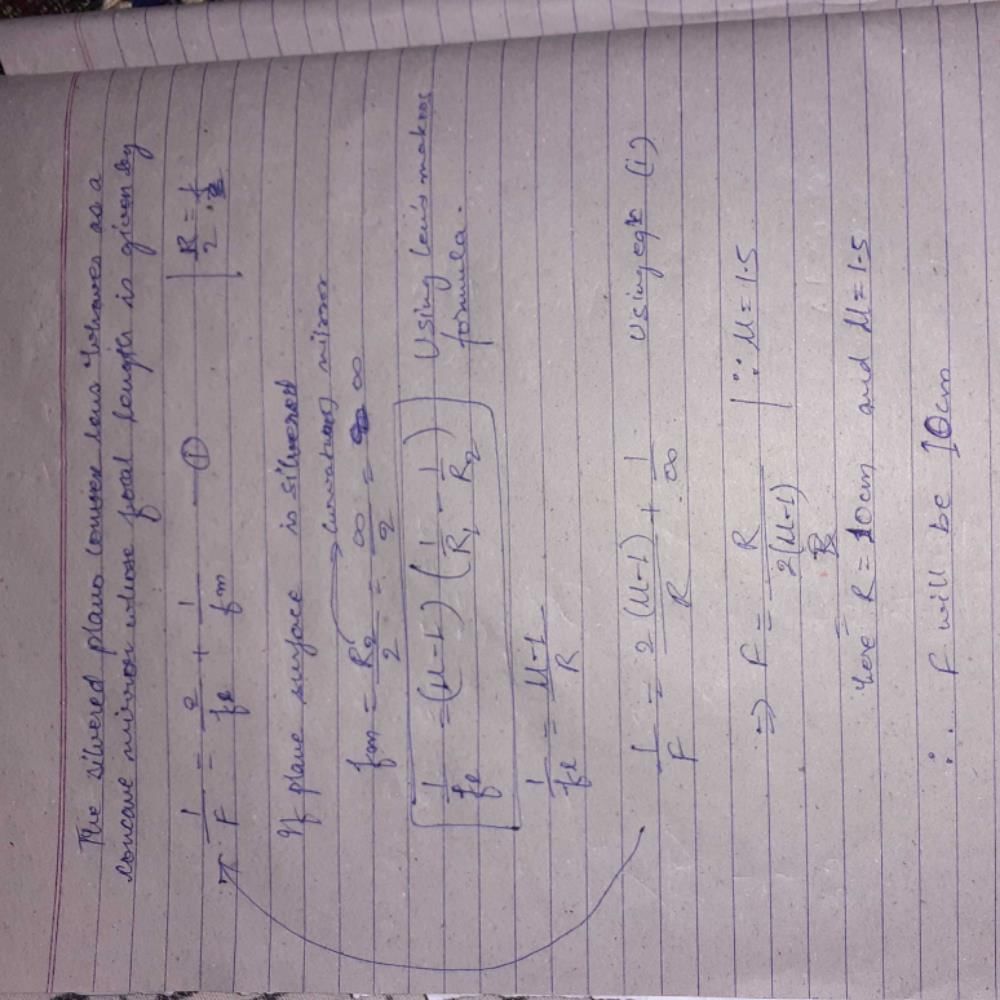 The silvered plano convex lens behaves as a
concave mirror whose focal length is given by
1/F = 2/fl + 1/fm ——— ① | R/2 = f
If plane surface is silvered
fm = R2/2 = ∞/2 = ∞ → Curvature mirror
1/fl = (μ-1) (1/R1 - 1/R2) Using len's makers
formula.
1/fl = μ-1/R
1/F = 2(μ-1)/R + 1/∞ Using eqn (i)
⇒ F = R/2(μ-1) | ∵ μ = 1.5
here R = 10cm and μ = 1.5
∴ F will be 10cm